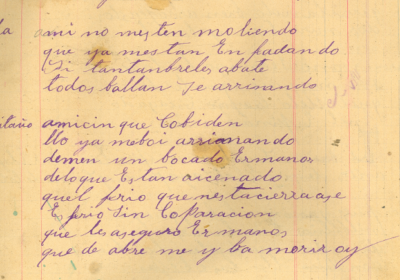 la ami no mesten moliendo
que ya mestan En fadando
Si tantanbreles abate
todos ballan Se arrimando
itaño amicin que Cobiden
llo ya meboi arrimando
demen un bocado Ermanos
delo que Estan aicenado
quel frio que nestacierra ase
Es frio Sin Coparacion
que les aseguro Ermanos
que de abre me y ba morir oy